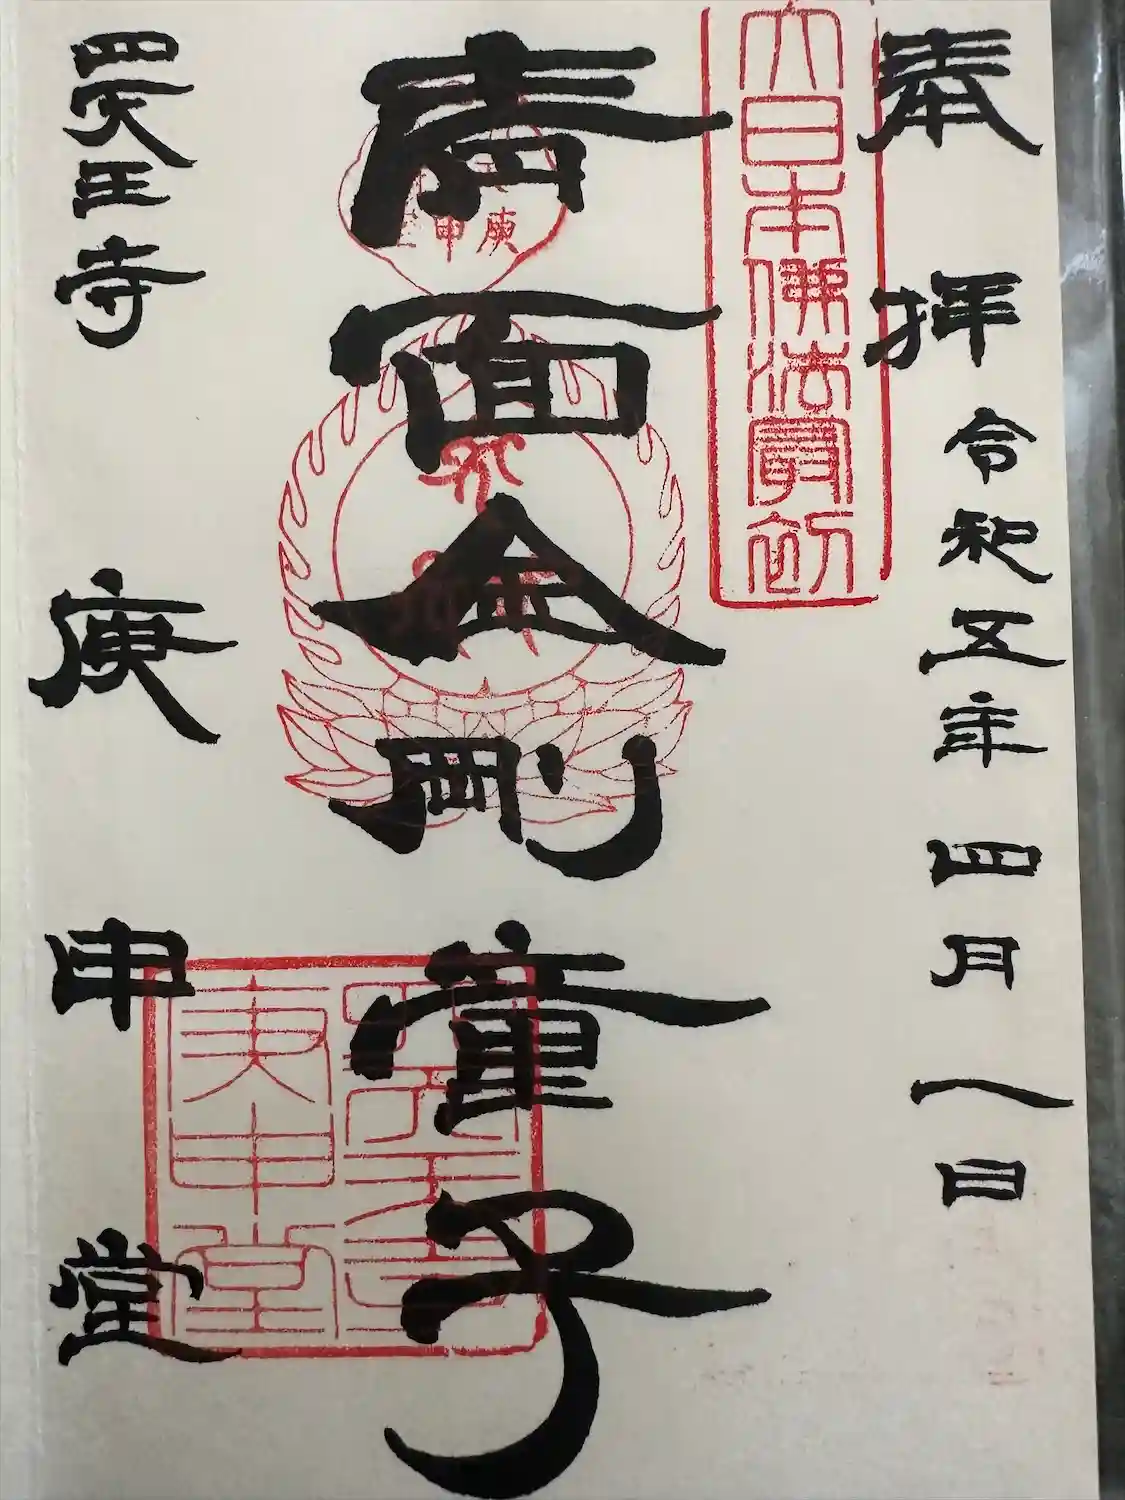 奉拝 令和五年 四月 一日
大日本佛法最初
青面金剛童子
庚申
四天王寺
庚申堂
四天王寺 庚申堂